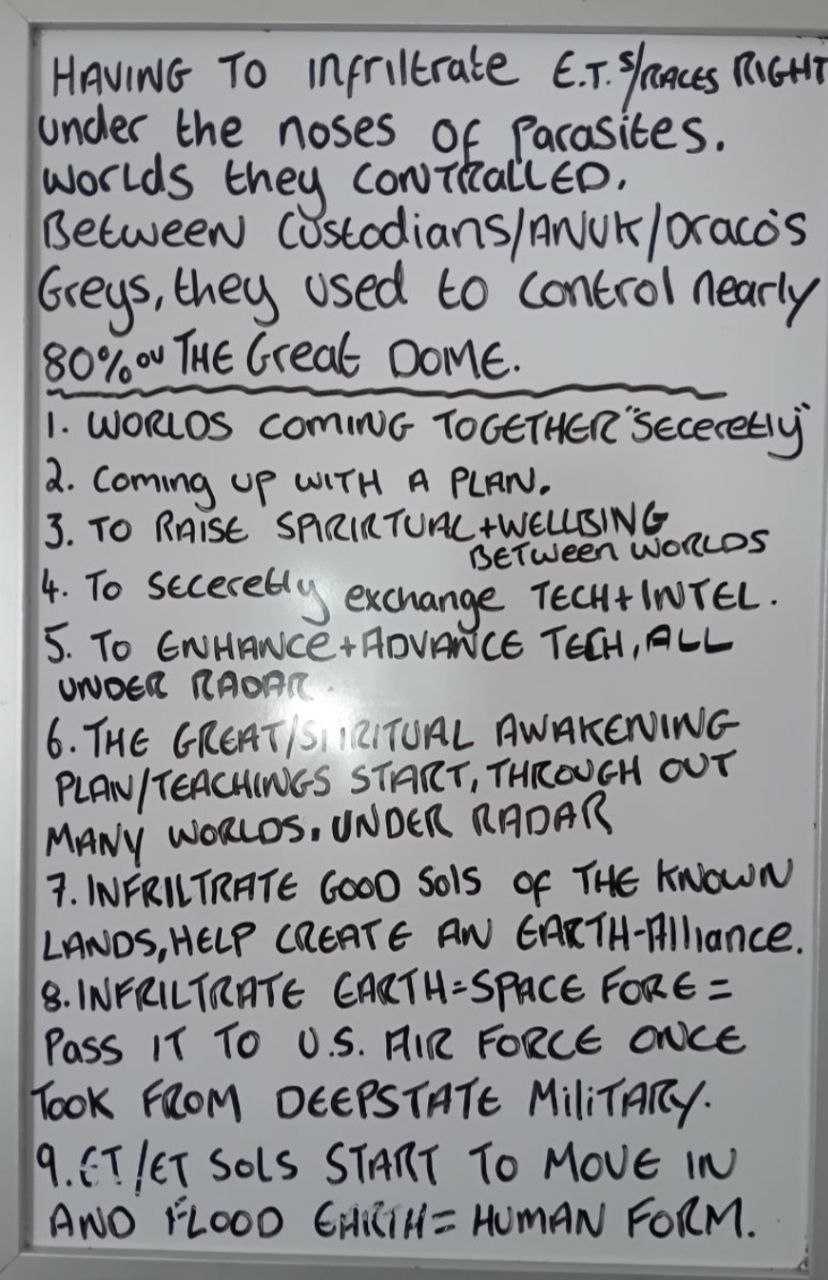 HAVING TO INfRILtRAtE E.T.S/RACES RIGHT
under the noses OF Parasites.
WORLDS they CONTRALLED.
Between Custodians/ANUK/Draco's
Greys, they used to control nearly
80% ou THE Great DOME.
1. WORLDS COMING TOGETHER "Seceretly"
2. Coming up WITH A PLAN.
3. TO RAISE SPIRIRTUAL+WELLBING
BETWEEN WORLDS
4. To Seceretly exchange TECH+INTEL.
5. TO ENHANCE+ADVANCE TECH, ALL
UNDER RADAR.
6. THE GREAT/SPIRITUAL AWAKENING
PLAN/TEACHINGS START, THROUGH OUT
MANY WORLDS. UNDER RADAR
7. INFRILTRATE GOOD SOlS OF THE KNOWN
LANDS, HELP CREATE AN EARTH-Alliance.
8. INFRILTRATE EARTH=SPACE FORE=
Pass IT TO U.S. AIR FORCE ONCE
TOOK FROM DEEPSTATE MiliTARY.
9. ET/ET SOLS START TO MOVE IN
AND FLOOD EARTH= HUMAN FORM.